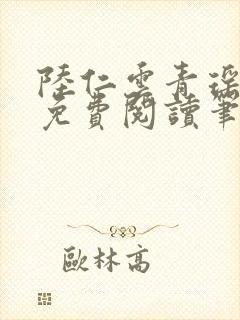 陸仁雲青瑶
免費閱讀筆
歐林高